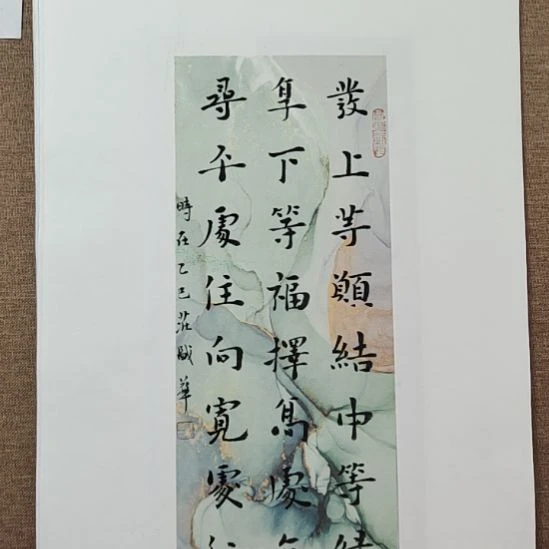 發上等願結中等
享下等福擇高處
尋平處住向寬處
時在乙巳莊華